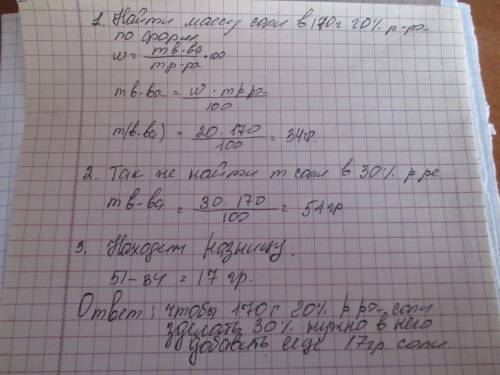 1. Найти массу соли в 170 г 20% р-ра
по форм
w = m в-ва / m р-ра · 100
m в-ва = w · m р ра / 100
m(в-ва) = 20 · 170 / 100 = 34 гр.
2. Так же найти m соли в 30% р ре
m в-ва = 30 · 170 / 100 = 54 гр
3. Находим разницу.
51 - 34 = 17 гр.
Ответ: чтобы 170 г 20% р ра соли
сделать 30% нужно в него
добавить еще 17 гр соли.